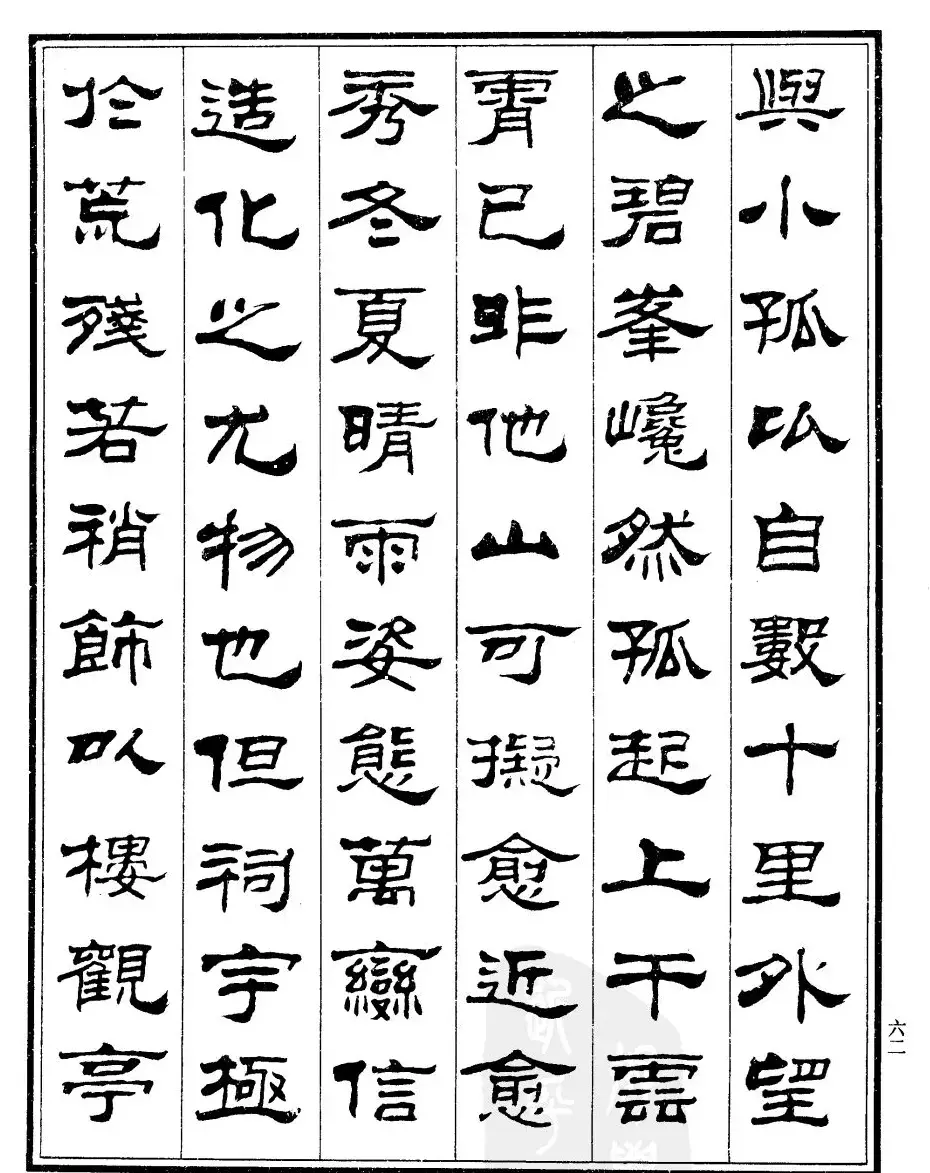 與小孤以自數十里外望
之碧峯巉然孤起上干雲
霄已非他山可擬愈近愈
秀冬夏晴雨姿態萬變信
造化之尤物也但祠宇極
於荒殘若稍飾以樓觀亭
六二